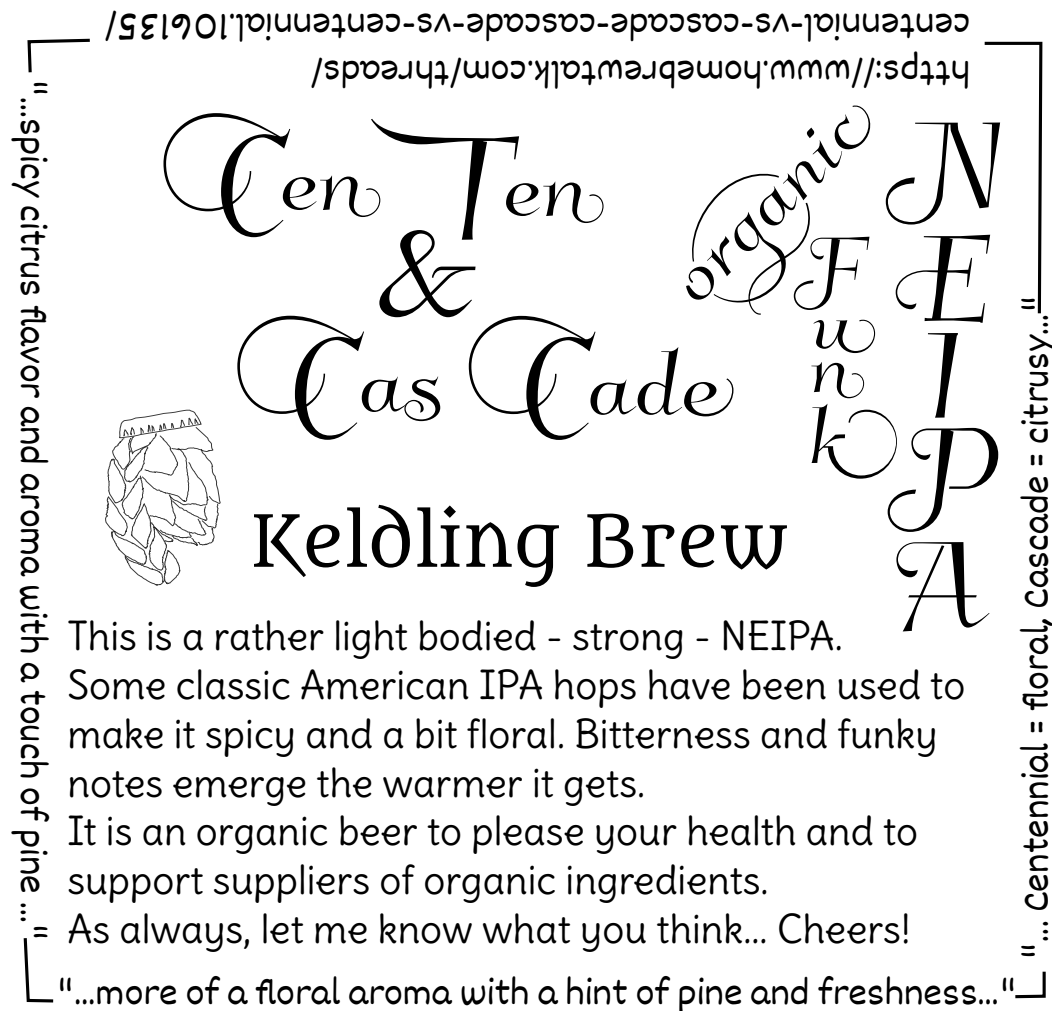 https://www.homebrewtalk.com/threads/
centennial-vs-cascade-cascade-vs-centennial.106135/
Cen Ten
&
Cas Cade
organic
Funk
NEIPA
Keldling Brew
This is a rather light bodied - strong - NEIPA.
Some classic American IPA hops have been used to
make it spicy and a bit floral. Bitterness and funky
notes emerge the warmer it gets.
It is an organic beer to please your health and to
support suppliers of organic ingredients.
As always, let me know what you think... Cheers!
"...spicy citrus flavor and aroma with a touch of pine ..."
"...more of a floral aroma with a hint of pine and freshness..."
"... Centennial = floral, Cascade = citrusy..."